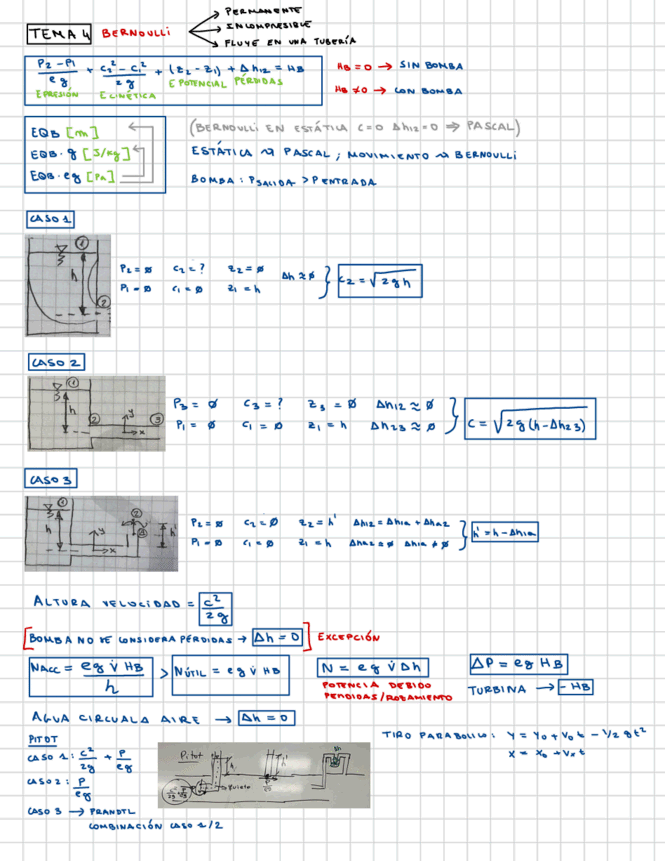 TEMA 4 BERNOULLI
PERMANENTE
INCOMPRESIBLE
FLUYE EN UNA TUBERÍA
P2 - P1 / ρg + c2² - c1² / 2g + (z2 - z1) + Δh12 = HB
E PRESIÓN E CINÉTICA E POTENCIAL PÉRDIDAS
HB = 0 → SIN BOMBA
HB ≠ 0 → CON BOMBA
EQB [m]
EQB · g [J/kg]
EQB · ρg [Pa]
(BERNOULLI EN ESTÁTICA C=0 Δh12=0 ⇒ PASCAL)
ESTÁTICA ↝ PASCAL ; MOVIMIENTO ↝ BERNOULLI
BOMBA : P SALIDA > P ENTRADA
CASO 1
1
h
2
P2 = ø c2 = ? z2 = ø Δh ≈ ø
P1 = ø c1 = ø z1 = h
c2 = √2gh
CASO 2
1
h
2 y x 3
P3 = ø c3 = ? z3 = ø Δh12 ≈ ø
P1 = ø c1 = ø z1 = h Δh23 ≈ ø
c = √2g(h - Δh23)
CASO 3
1
h
y x 2 A h'
P2 = ø c2 = ø z2 = h' Δh12 = Δh1A + ΔhA2
P1 = ø c1 = ø z1 = h ΔhA2 = ø Δh1A ≠ ø
h' = h - Δh1A
ALTURA VELOCIDAD = c² / 2g
[BOMBA NO SE CONSIDERA PÉRDIDAS → Δh = 0] EXCEPCIÓN
NACC = ρg V̇ HB / η > NÚTIL = ρg V̇ HB
N = ρg V̇ Δh
POTENCIA DEBIDO
PERDIDAS/ROZAMIENTO
ΔP = ρg HB
TURBINA → - HB
AGUA CIRCUALA AIRE → Δh = 0
PITOT
CASO 1 : c²/2g + P/ρg
CASO 2 : P/ρg
CASO 3 → PRANDTL
COMBINACIÓN CASO 1/2
Pitot
h h' Δh
TIRO PARABOLICO : y = y0 + v0 t - 1/2 g t²
x = x0 + vx t